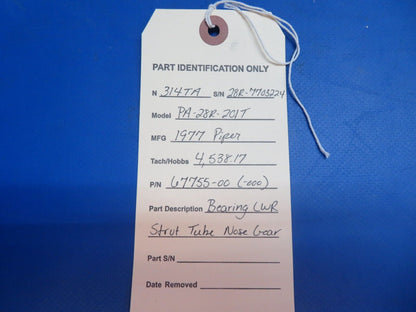 PART IDENTIFICATION ONLY
N 314TA S/N 28R-7703224
Model PA-28R-201T
MFG 1977 Piper
Tach/Hobbs 4,538.17
P/N 67755-00 (-000)
Part Description Bearing LWR
Strut Tube Nose Gear
Part S/N
Date Removed